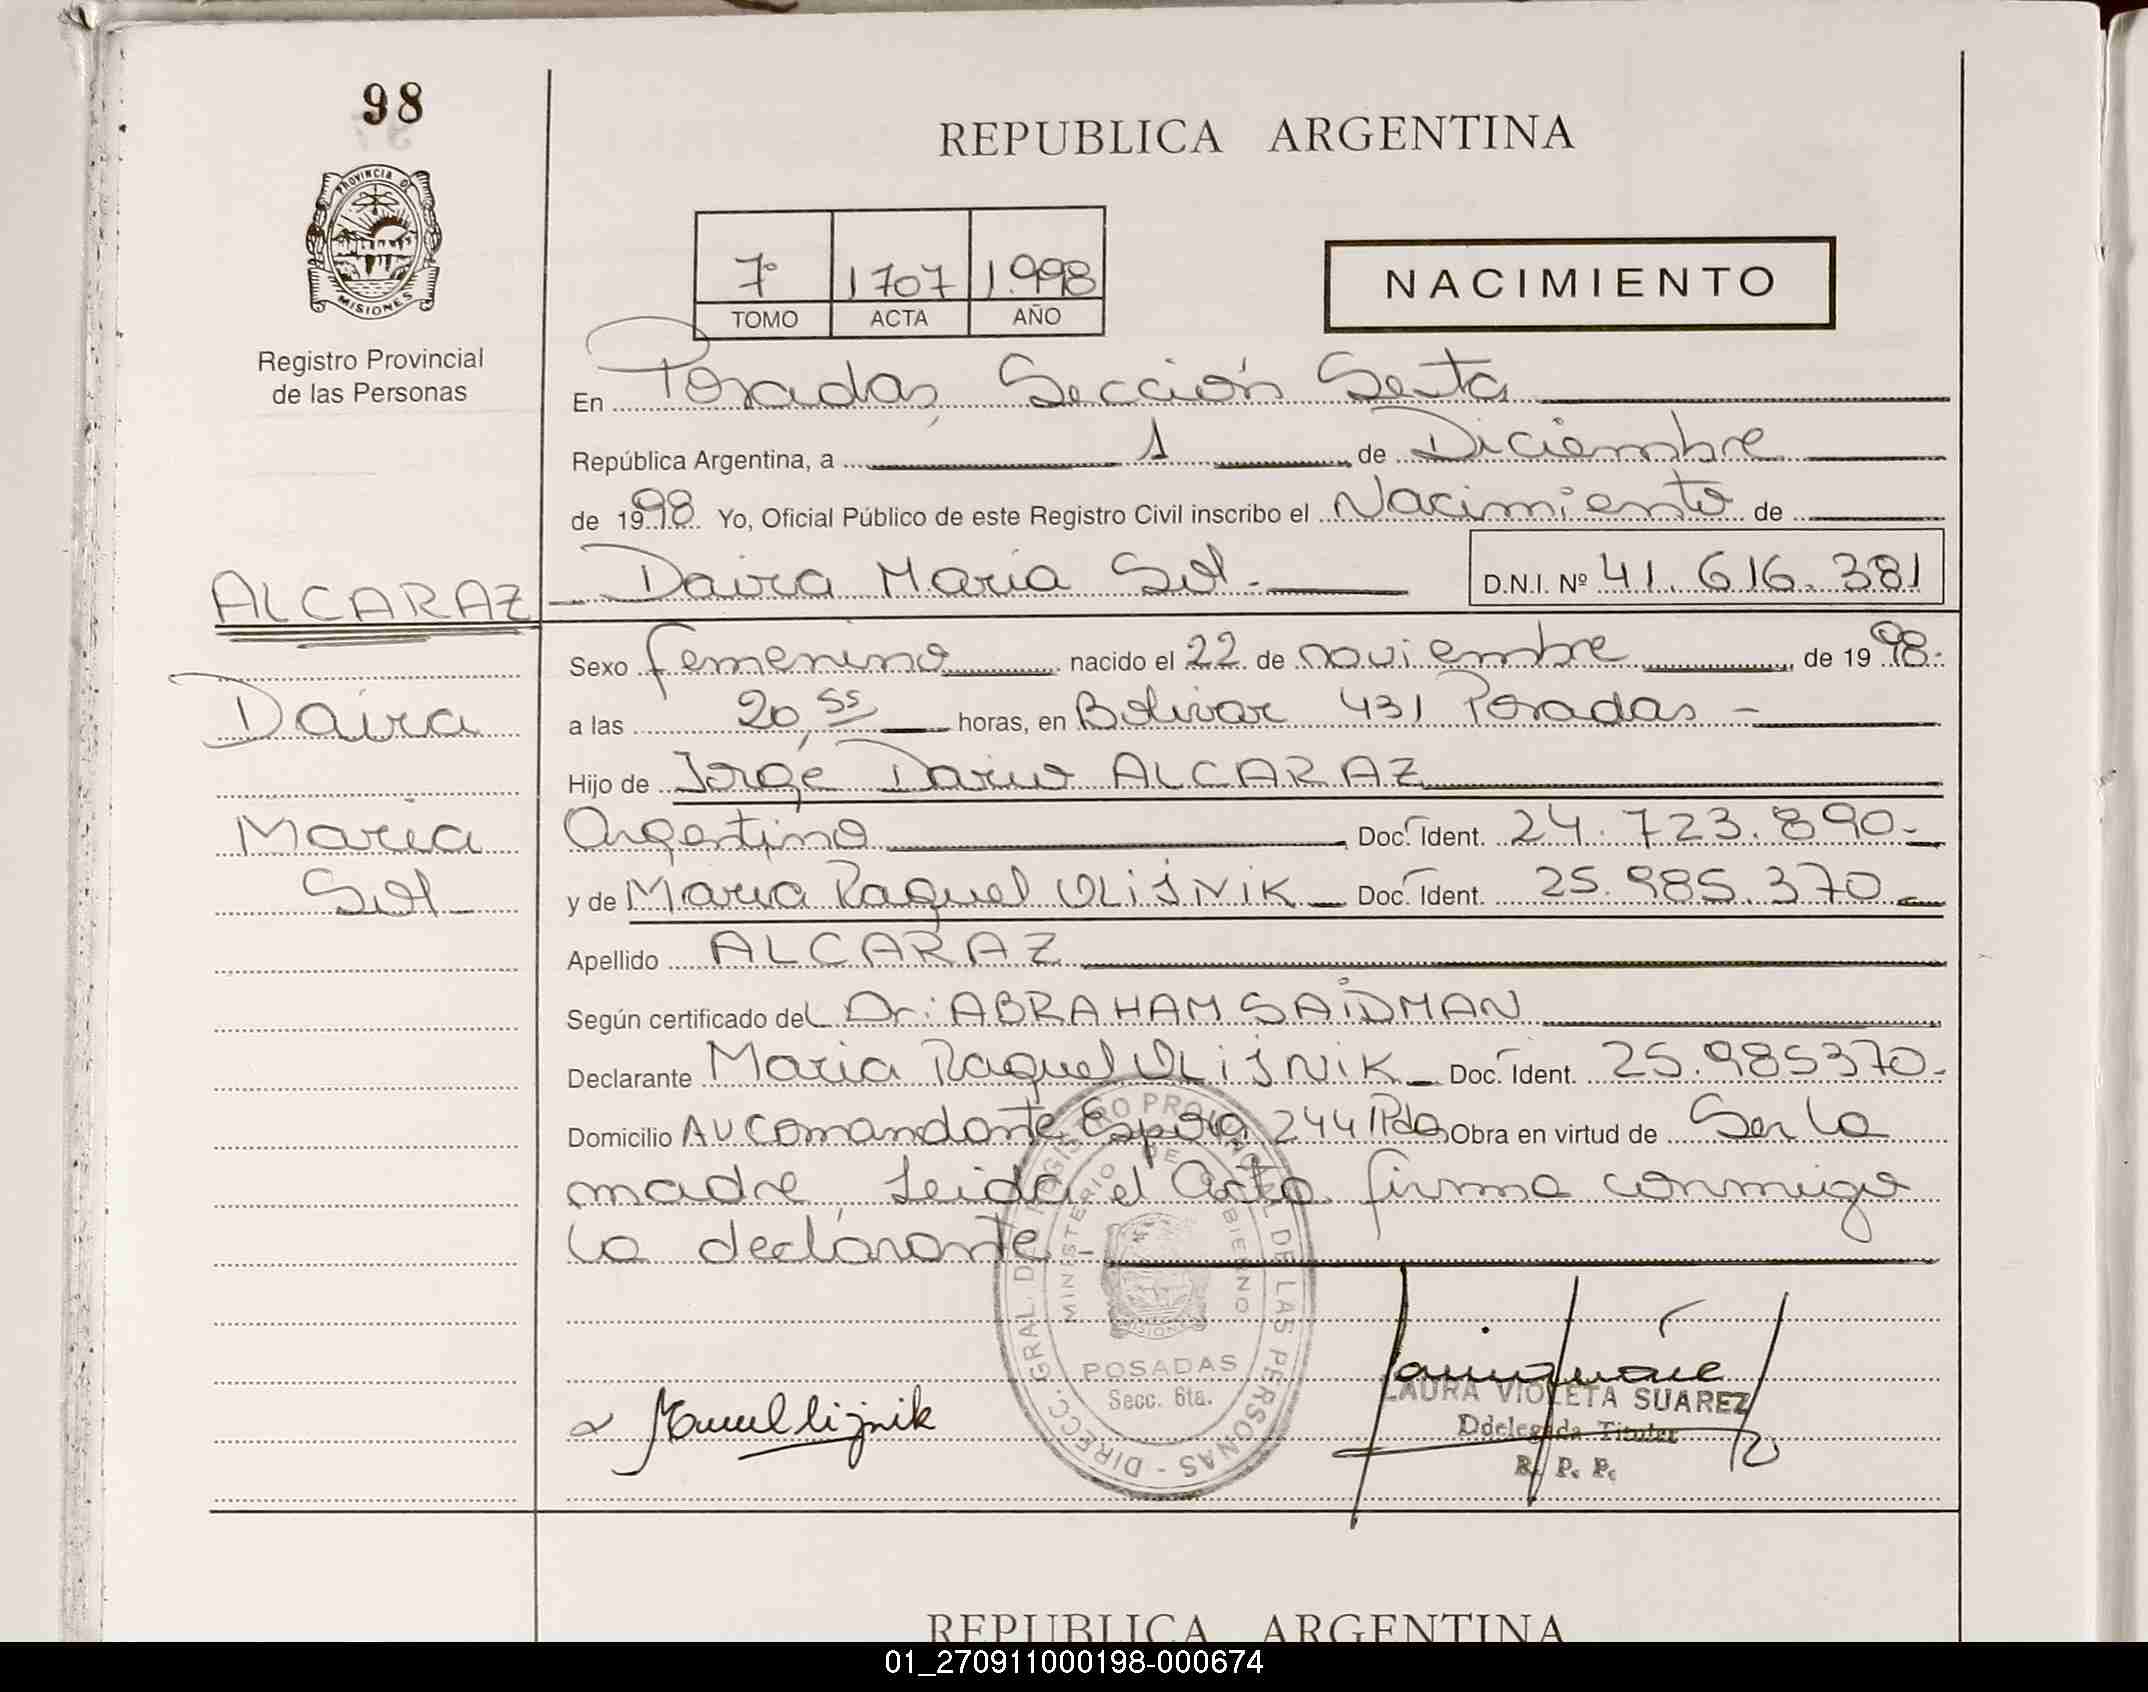 98
REPUBLICA ARGENTINA
PROVINCIA DE
MISIONES
7º 1707 1.998
TOMO ACTA AÑO
NACIMIENTO
Registro Provincial
de las Personas
En Posadas, Sección Sexta
República Argentina, a 1 de Diciembre
de 1998 Yo, Oficial Público de este Registro Civil inscribo el Nacimiento de
ALCARAZ Daira Maria Sol.- D.N.I. Nº 41.616.381
Sexo femenino nacido el 22 de noviembre, de 1998.
Daira a las 20,55 horas, en Bolivar 431 Posadas -
Hijo de Jorge Dario ALCARAZ
Maria Argentino Doc. Ident. 24.723.890.-
Sol y de Maria Raquel OLIJNIK Doc. Ident. 25.985.370
Apellido ALCARAZ
Según certificado del Dr: ABRAHAM SAIDMAN
Declarante Maria Raquel OLIJNIK Doc. Ident. 25.985370.
Domicilio AV Comandante Espora 244 Pdas Obra en virtud de Ser la
madre Leida el Acta firma conmigo
la declarante.-
DIRECC. GRAL. DEL REGISTRO PROVINCIAL DE LAS PERSONAS -
MINISTERIO DE GOBIERNO
MISIONES
POSADAS
Secc. 6ta.
LAURA VIOLETA SUAREZ
Ddelegada Titular
R. P. P.
REPUBLICA ARGENTINA
01_270911000198-000674